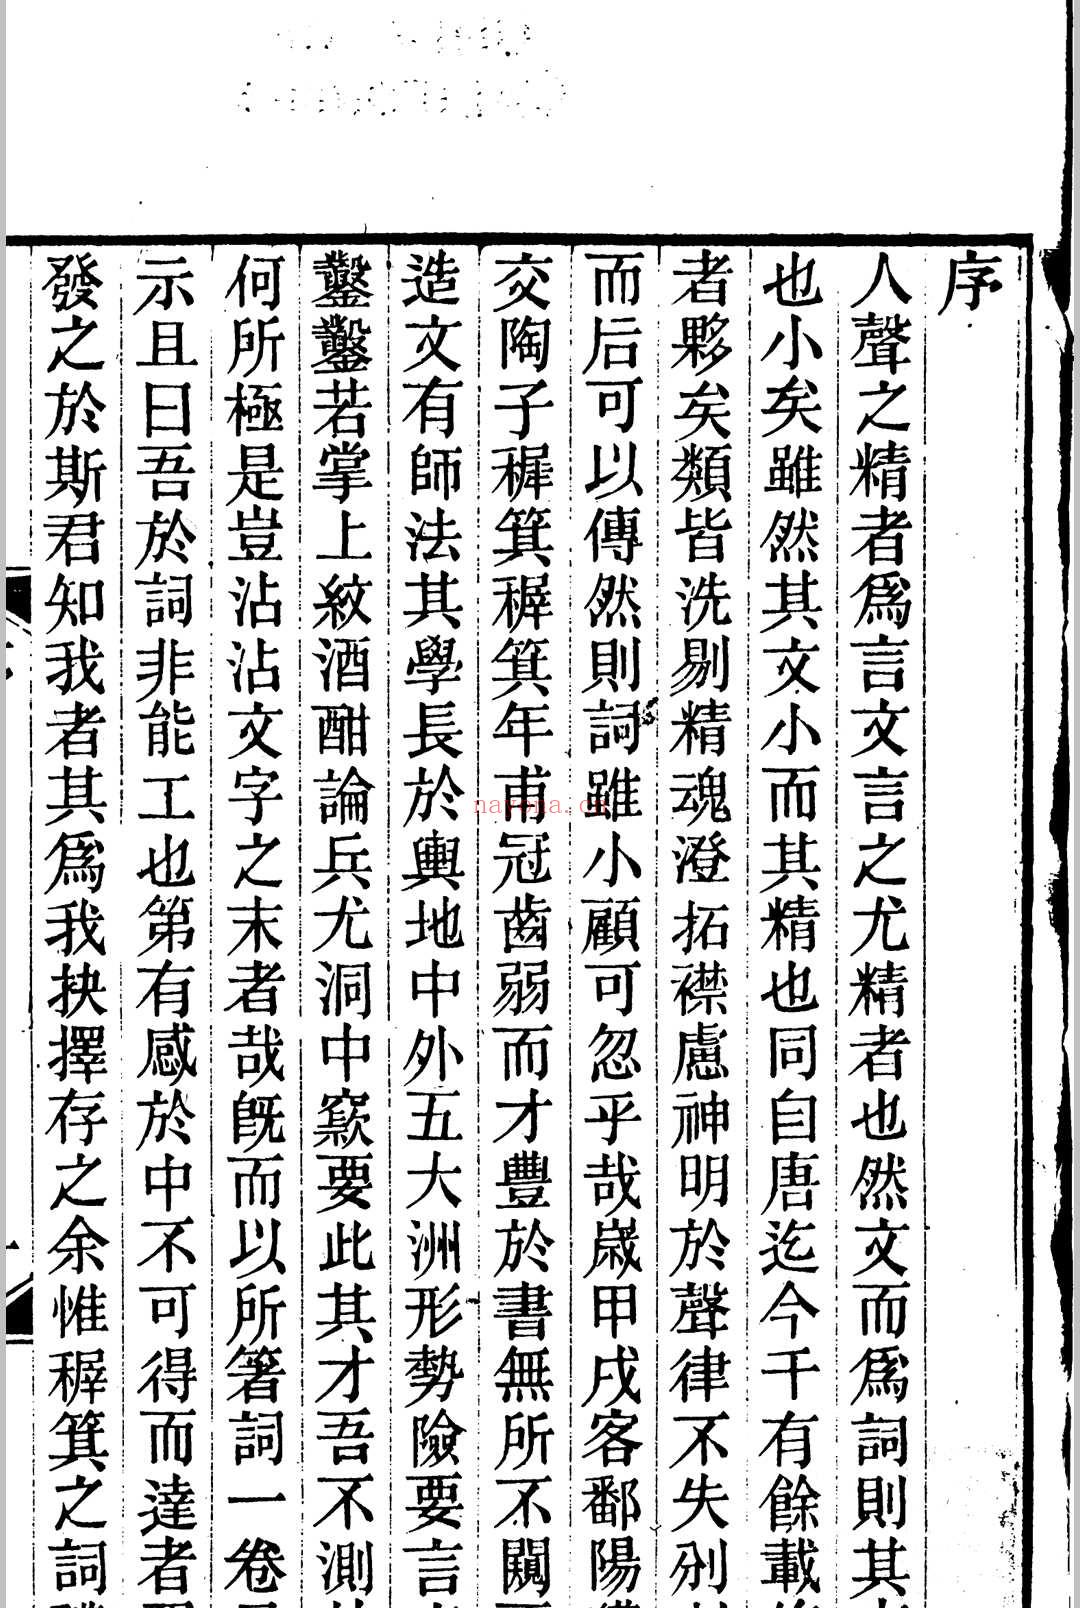 序
人聲之精者爲言文言之尤精者也然文而爲詞則其
也小矣雖然其文小而其精也同自唐迄今千有餘載
者夥矣類皆洗剔精魂澄拓襟慮神明於聲律不失刌
而后可以傳然則詞雖小顧可忽乎哉嵗甲戌客鄱陽
交陶子穉箕穉箕年甫冠齒弱而才豐於書無所不闚
造文有師法其學長於輿地中外五大洲形勢險要言
鑿鑿若掌上紋酒酣論兵尤洞中窾要此其才吾不測
何所極是豈沾沾文字之末者哉旣而以所箸詞一卷
示且曰吾於詞非能工也第有感於中不可得而達者
發之於斯君知我者其爲我抉擇存之余惟穉箕之詞
nayona.cn